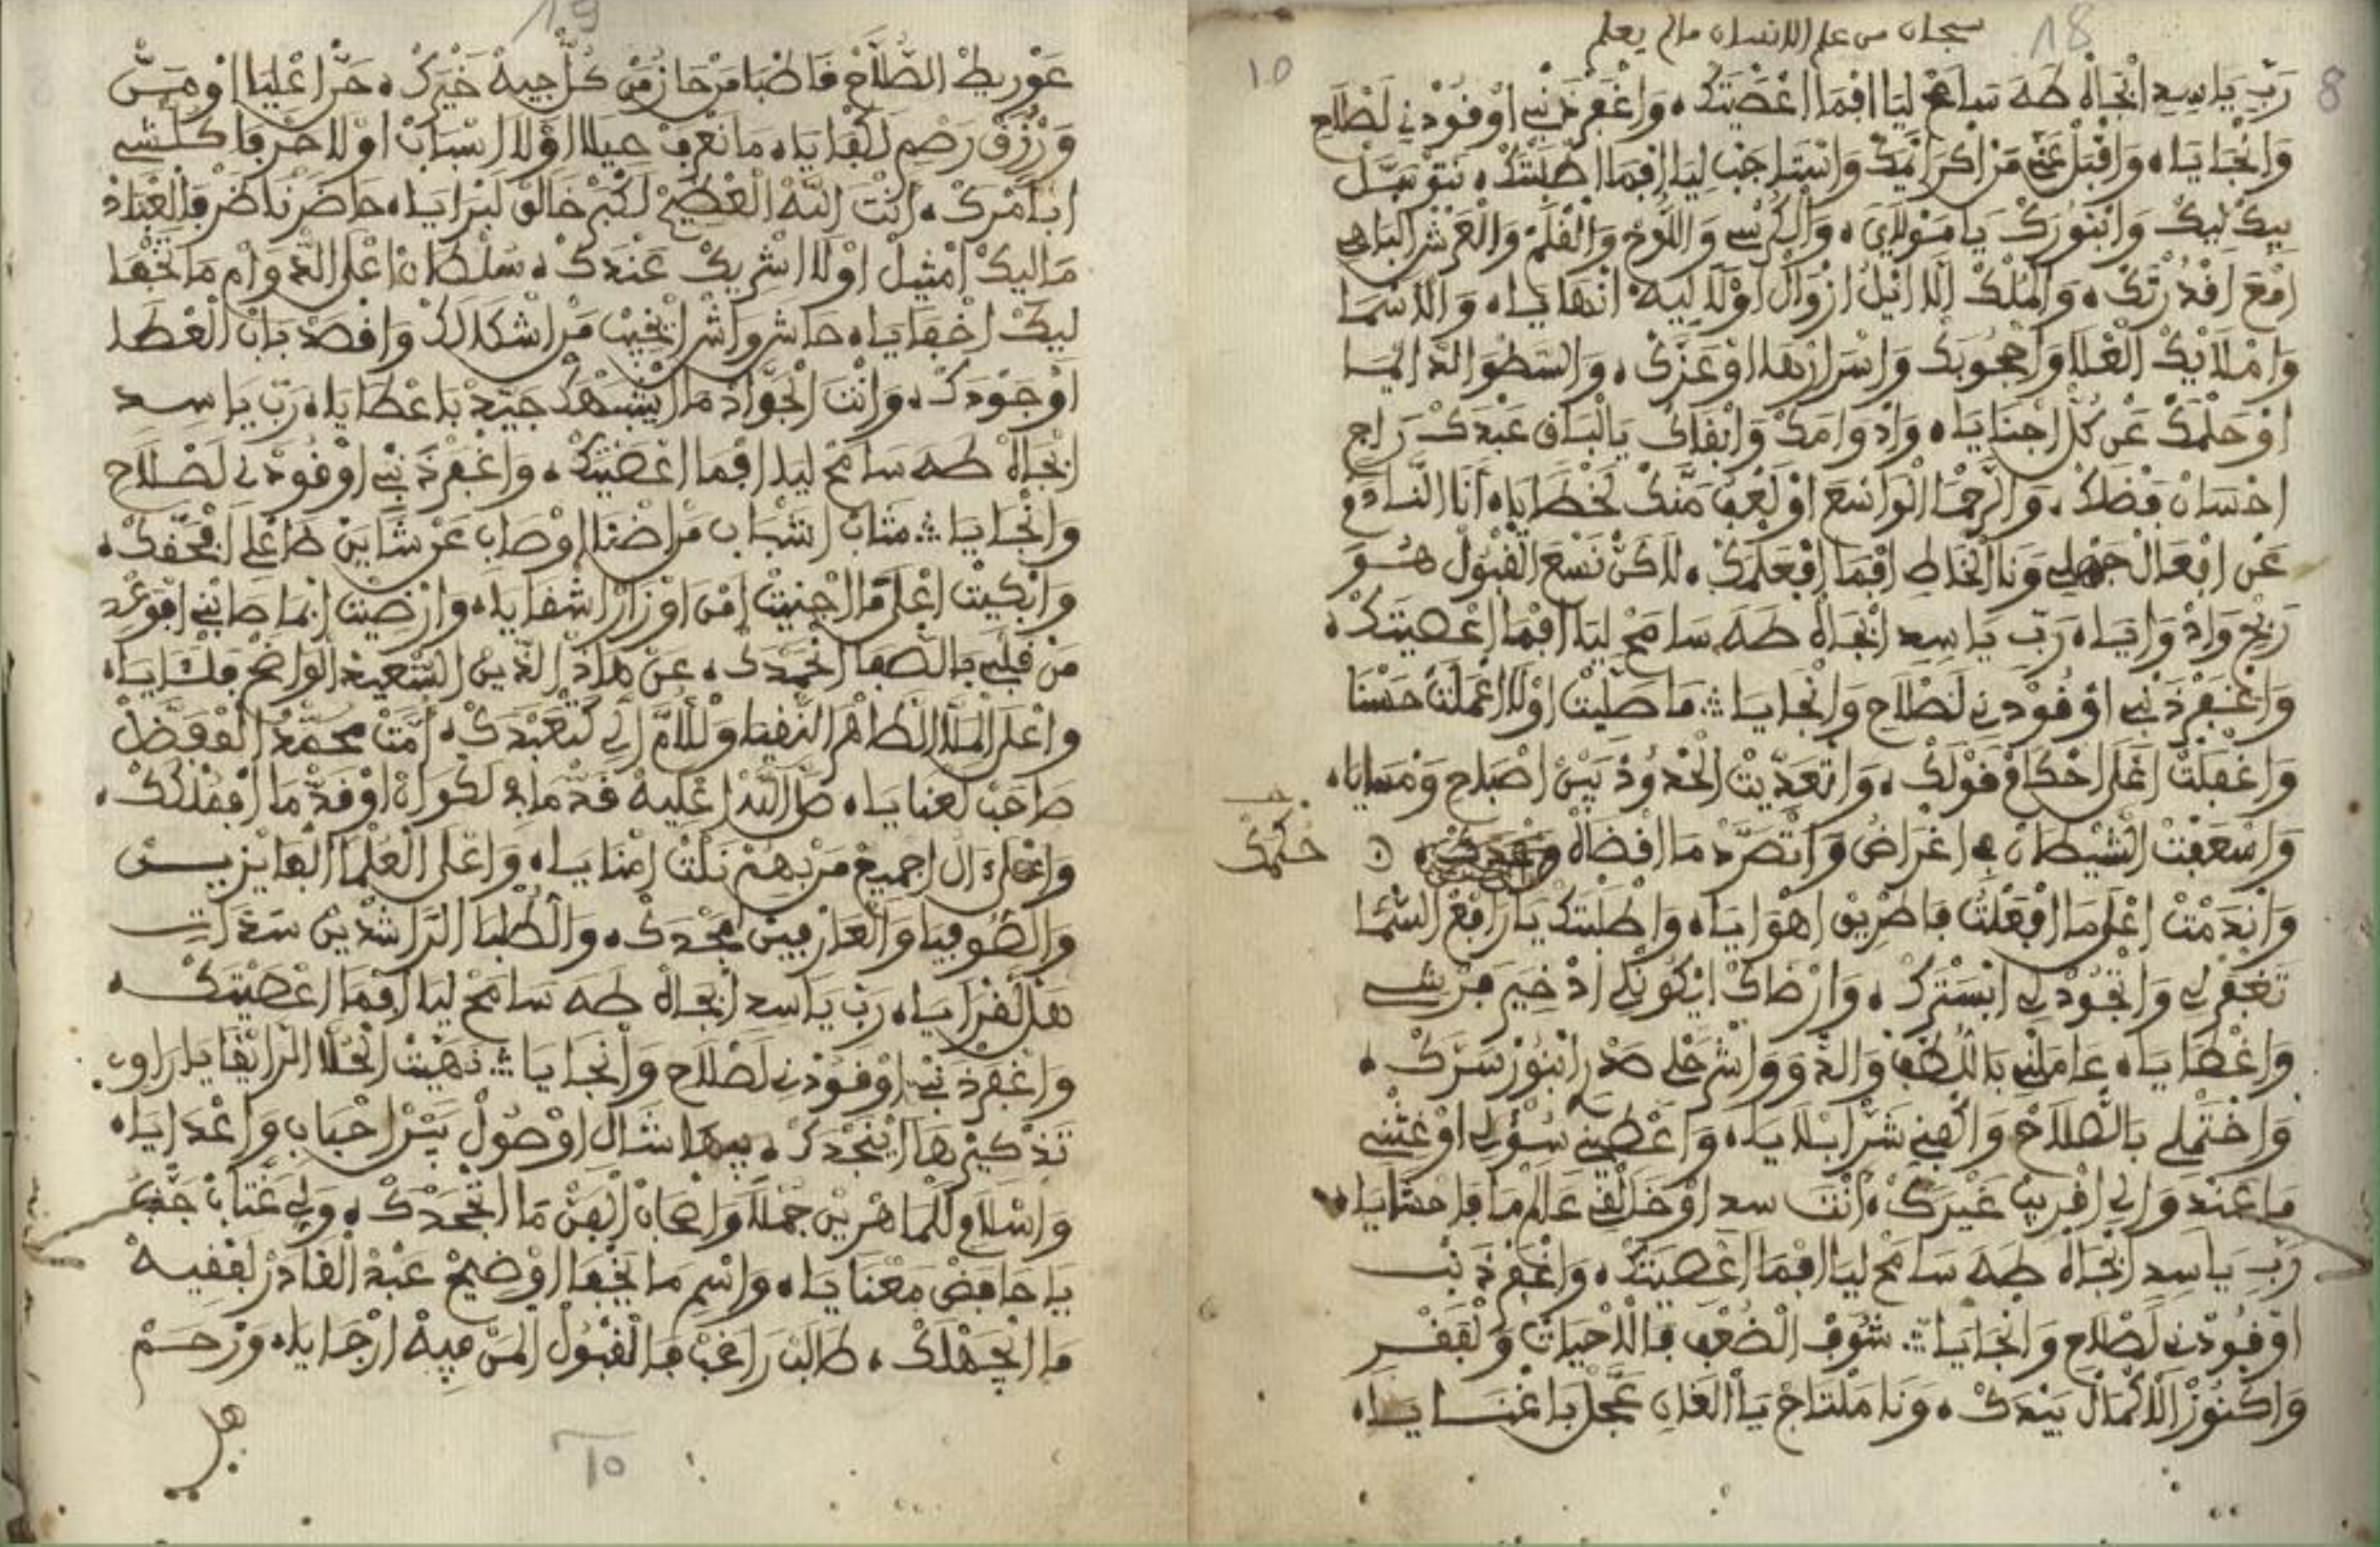 18
سبحان من علم الانسان مالم يعلم
10
8
رَبِّ يَا سِيدِ ابْجَاهْ طَهَ سَامَحْ لِيَا افْمَا اعْصَيْتَكْ، وَاغْفَرْ ذَنْبِي اوْفُودْنِي لَصْلَاحْ
وَانْجَايَاه، وَاقْبَلْ عَنِّي مَنْ اكْرَايْمَكْ وَاسْتَاجَبْ لِيَا افْمَا اطْلَبْتَكْ، نَتْوَسَّلْ
بِيكْ لِيكْ وَابْنُورَكْ يَا مَوْلَايَ، وَالْكُرْسِي وَاللُّوحْ وَالْقَلَمْ وَالْعَرْشْ الْبَاهِي
امْعَ اقْدُرْتَكْ، وَالْمُلْكْ اللَّا ايْلُ ازْوَالْ اوْلَا لِيهْ انْهَايَاه، وَالْاسْمَا
وَامْلَايْكْ الْعْلَا وَاحْجُوبَكْ وَاسْرَارْهَا اوْعَزَّكْ، وَالسَّطْوَا الدَّايْمَا
اوْحَلْمَكْ عَنْ كُلّْ اجْنَايَاه، وَادْوَامَكْ وَابْقَاكْ يَا الْبَاقِ عَبْدَكْ رَاجِ
احْسَانْ فَضْلَكْ، وَالرَّحْمَا الْوَاسَعَ اوْلَعْفُ مَنَّكْ لَخْطَايَاه، أَنَا النَّادَمْ
عَنْ افْعَالْ جَهْلِي وَنَا الْخَاطِ افْمَا افْعَلْمَكْ، لَاكَنْ نَسْعَ الْقْبُولْ هُوَ
رَبْحْ وَادْوَايَاه، رَبِّ يَا سِيدِ ابْجَاهْ طَهَ سَامَحْ لِيَا افْمَا اعْصَيْتَكْ،
وَاغْفَرْ ذَنْبِي اوْفُودْنِي لَصْلَاحْ وَانْجَايَا ؞ مَا صَلِّيتْ اوْلَا اعْمَلْتْ حَسْنَا
وَاغْفَلْتْ اعْلَى احْكَامْ قَوْلَكْ، وَاتْعَدِّيتْ الْحْدُودْ بَيْنْ اصْبَاحْ وَمْسَايَاه،
وَاسْعَفْتْ الشَّيْطَانْ فِي اغْرَاضُ وَاتْصَرَّدْ مَا اقْضَاهْ
حكمك
وَانْدَمْتْ اعْلَى مَا افْعَلْتْ فَاطْرِيقْ اهْوَايَاه، وَاطْلَبْتَكْ يَا رَافَعْ السَّمَا
تَغْفَرْ لِي وَاتْجُودْ لِي ابْسَتْرَكْ، وَارْضَاكْ ايْكُونْ لِي ادْخِيرَ فَرْشِي
وَاغْطَايَاه، عَامَلْنِي بَاللُّطْفْ وَالدَّوَ وَاشْرَحْ لِي صَدْرِ ابْنُورْ سَرَّكْ،
وَاخْتَمْ لِي بَالصْلَاحْ وَاكْفِنِي شَرّْ ابْلَايَاه، وَاعْطِينِي سُؤْلِي اوْغَثْنِي
مَا عَنْدِ وَالِي اقْرِيبْ غَيْرَكْ، أَنْتَ سيدِ اوْخَالْقِي عَالَمْ مَا فَاحْشَايَاه،
رَبِّ يَا سِيدِ ابْجَاهْ طَهَ سَامَحْ لِيَا افْمَا اعْصَيْتَكْ، وَاغْفَرْ ذَنْبِي
اوْفُودْنِي لَصْلَاحْ وَانْجَايَا ؞ شُوفْ الضُّعْفْ فَالَاحْيَاتْ وَلْفَقْرِ
وَاكْنُوزْ الْاكْمَالْ بِيَدَكْ، وَنَا مَلْتَاجْ يَا الْغَانِ عَجَّلْ بَاغْنَايَاه،
19
عَوْرِيطْ الصْلَاحْ فَاطْبَامَرْ حَازْ مَنْ كُلّْ جِيهْ خَيْرَكْ، حَرّْ اعْلِيَا اوْمَسّْ
وَرْزَقْ رَصْمِ لَكْفَايَاه، مَا نَعْرَفْ حِيلَا اوْلَا اسْبَابْ اوْلَا حَرْفَا كُلْشِي
ابَامْرَكْ، أَنْتَ اللَّهْ الْعْظِيمْ لَكْبِرْ خَالَقْ لَبْرَايَاه، حَاضَرْ نَاضَرْ فَالْعْبَادْ
مَالِيكْ امْثِيلْ اوْلَا اشْرِيكْ عَنْدَكْ، سُلْطَانْ اعْلَى الدّْوَامْ مَا تَخْفَا
لِيكْ اخْفَايَاه، حَاشَ وَاشْ ايْخِيبْ مَنْ اشْكَالَكْ وَاقْصَدْ بَابْ الْعْطَا
اوْجُودَكْ، وَانْتَ الْجْوَادْ مَا ايْشَبْهَكْ جَيِّدْ بَاعْطَايَاه، رَبِّ يَا سِيدِ
ابْجَاهْ طَهَ سَامَحْ لِيَا افْمَا اعْصَيْتَكْ، وَاغْفَرْ ذَنْبِي اوْفُودْنِي لَصْلَاحْ
وَانْجَايَا ؞ مَتَابْ اشْبَابِ مَرْاضْنَا اوْصَابِ عَرْشَايَنْ طَاعْلِي ابْحَقَّكْ،
وَابْكِيتْ اعْلَى مَا اجْنِيتْ امْنْ اوْزَارْ اشْقَايَاه، وَارْضِيتْ ابْمَا صَابْنِي افْوَعْدِ
مَنْ قَلْبِي بَالصّْفَا انْحَمْدَكْ، عَنْ هَادْ الدِّينْ السّْعِيدْ الْوَاضَحْ
وَاعْلَى الْمَلَّا الطَّاهْرَ النّْقِيَا وَلْلَامَّ الِّي تَعْبَدَكْ، أُمَّتْ مُحَمَّدْ الْمْفَضَّلْ
صَاحَبْ لَعْنَايَاه، صَلَّى اللَّهْ اعْلِيهْ قَدّْ مَا فِي لَكْوَانْ اوْقَدّْ مَا افْمُلْكَكْ،
وَاعْلَى الْ اجْمِيعْ مَنْ بِهُمْ نَلْتْ امْنَايَاه، وَاعْلَى الْعُلْمَا الْفَايْزِيـــنْ
وَالصُّوفِيَا وَالْعَارْفِينْ بْمَجْدَكْ، وَالطُّلْبَا الرَّاشْدِينْ سَدَاتِ
هَلْ لَقْرَايَاه، رَبِّ يَا سِيدِ ابْجَاهْ طَهَ سَامَحْ لِيَا افْمَا اعْصَيْتَكْ،
وَاغْفَرْ ذَنْبِي اوْفُودْنِي لَصْلَاحْ وَانْجَايَا ؞ نَهِيتْ الْحُلَّا الرَّايْقَا يَا رَاوِي
تَذْكِيرْهَا ايْنَجْدَكْ، بِيهَا شَالِ اوْصُولْ بَيْنْ احْبَابِ وَاعْدَايَاه،
وَاسْلَامِ لَلْمَاهْرِينْ جُمْلَا وَاصْحَابْ الْفَنّْ مَا اتْجَحْدَكْ، وَلِي عْتَابْ
يَا حَافَضْ مَعْنَايَاه، وَاسْمِ مَا يَخْفَا اوْضِيحْ عَبْدْ الْقَادَرْ لَفْقِيهْ
مَا اتْجَهْلَكْ، طَالَبْ رَاغَبْ فَالْقْبُولْ الْمَنْ فِيهْ ارْجَايَاه، وَرْحَمْ
هل
10